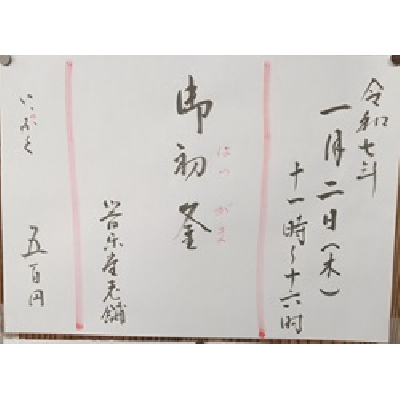 令和七年
一月二日(木)
十一時~十六時
御初釜
はつがま
老舗
いっぷく
五百円